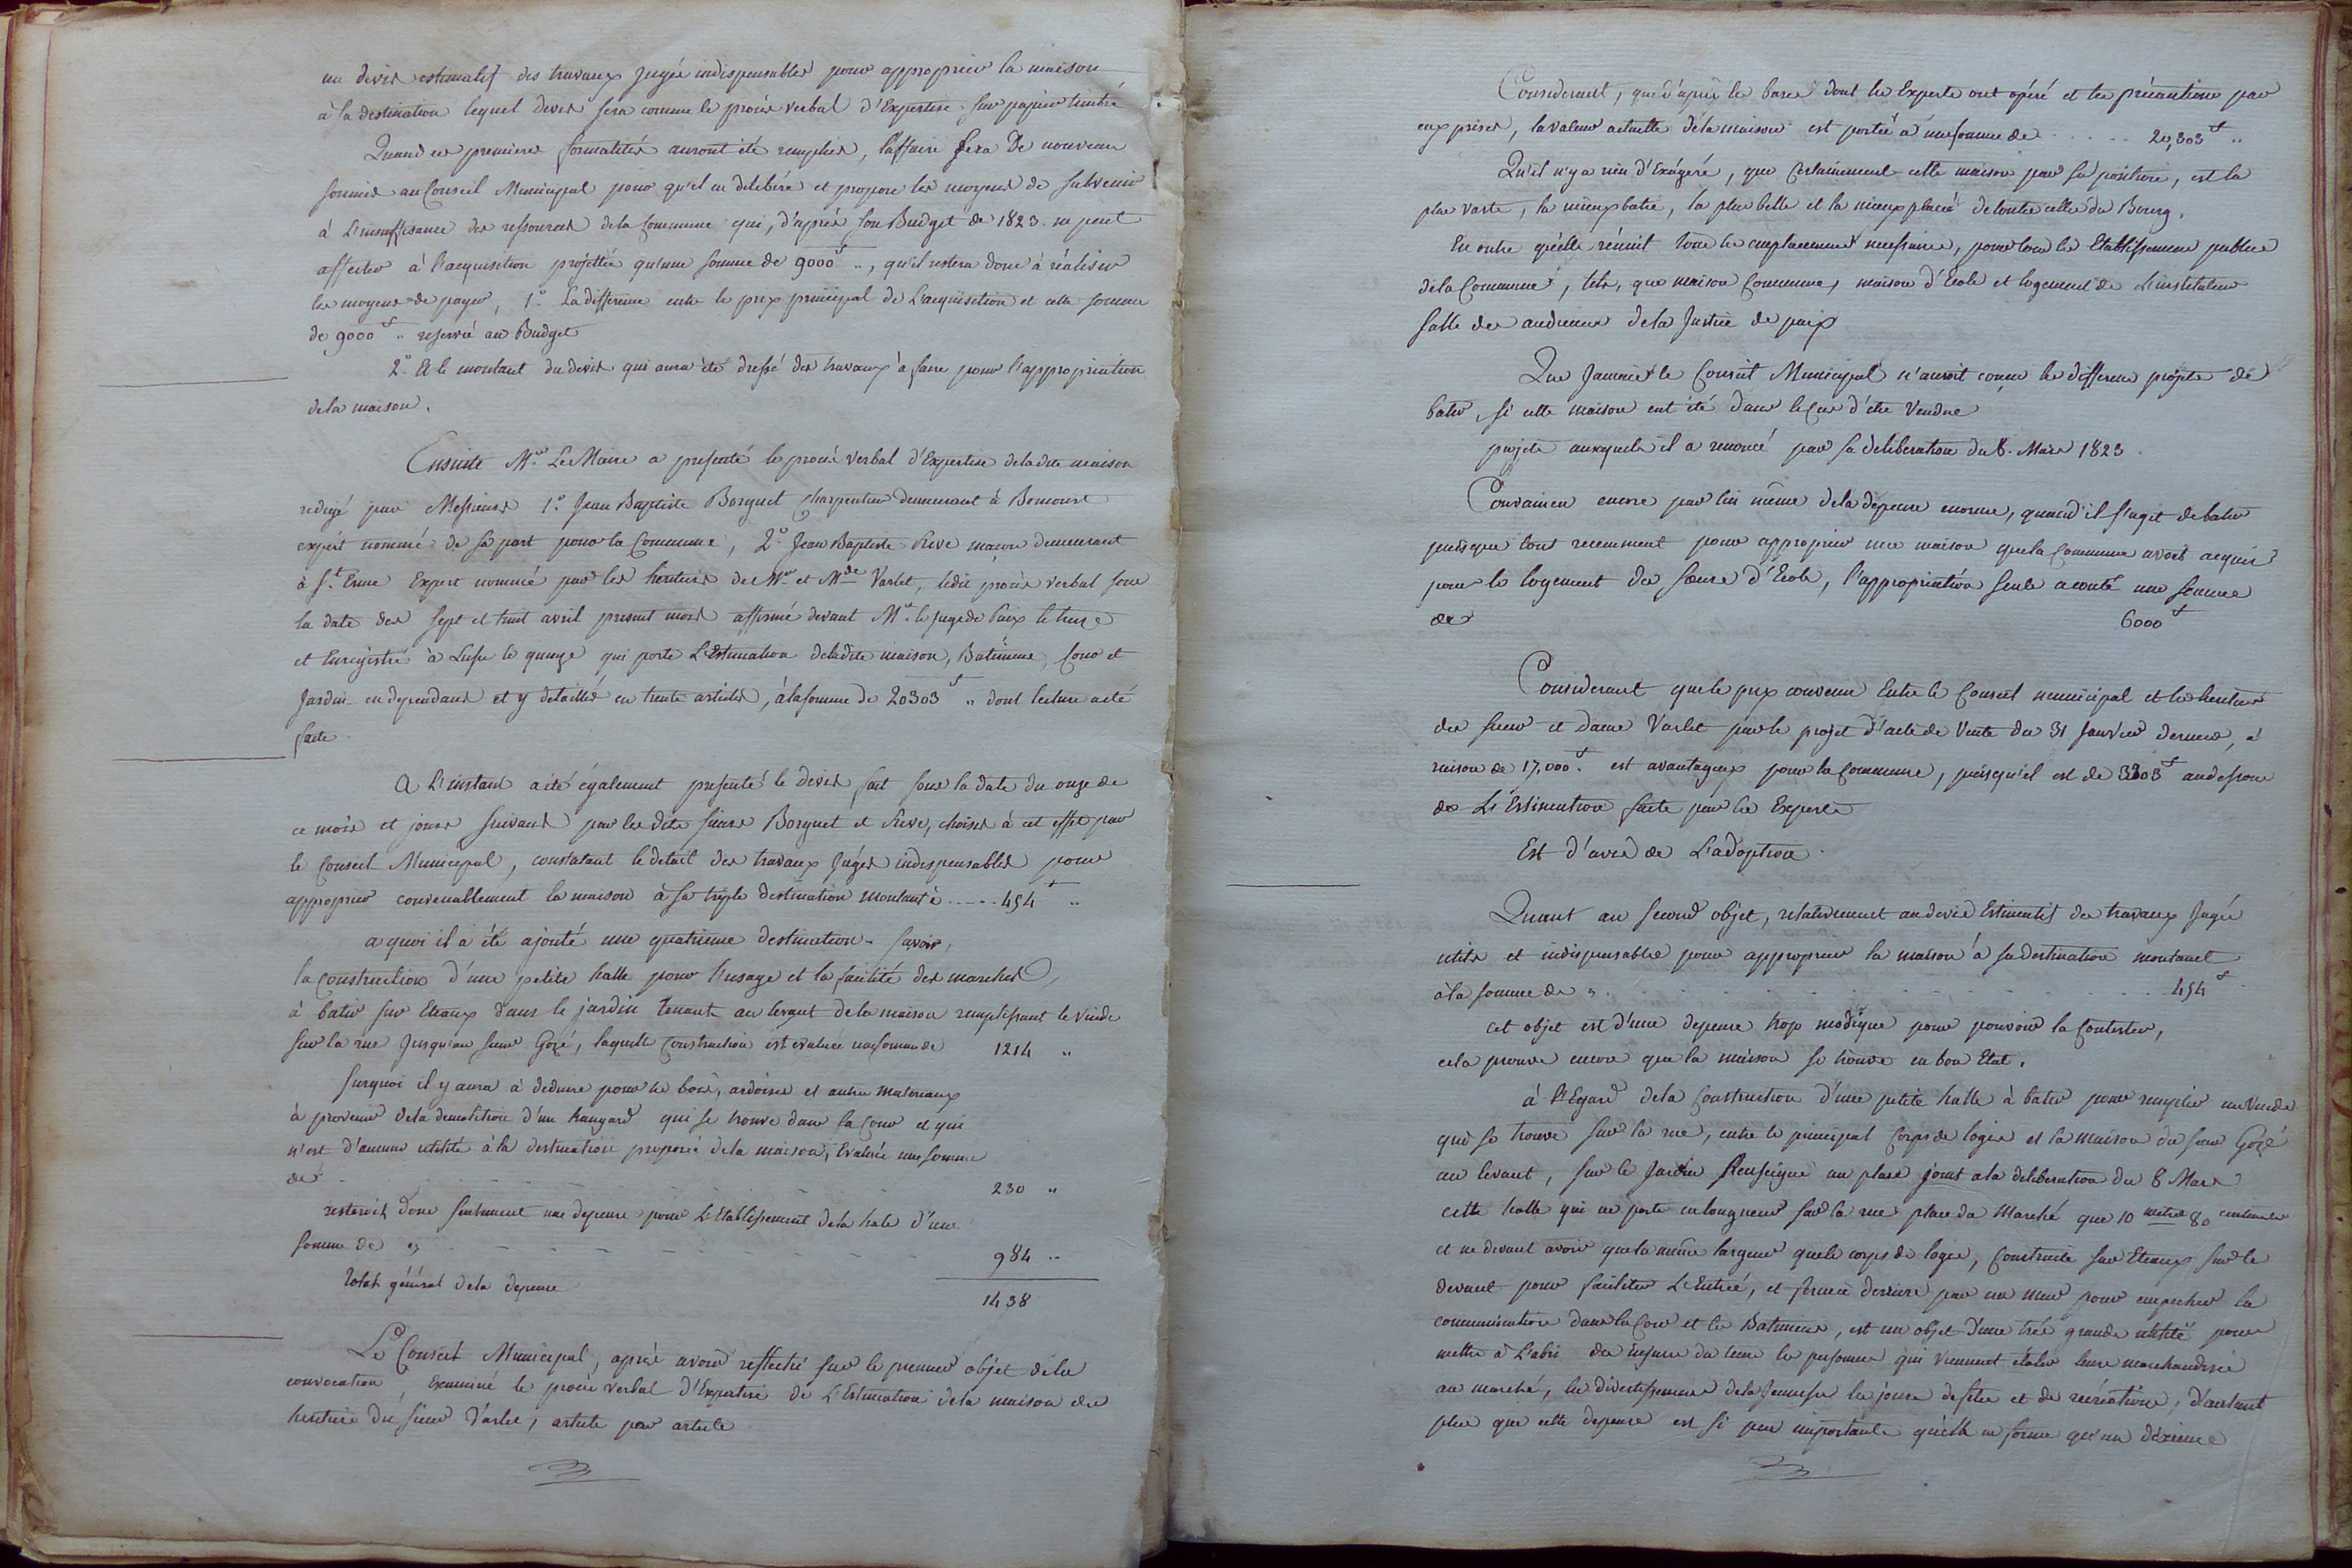 un devis estimatif des travaux jugés indispensables pour approprier la maison
à sa destination lequel devis sera comme le procès verbal d'Expertise sur papier timbré
Quand ces premieres formalités auront été remplies, l'affaire sera De nouveau
soumise au Conseil Municipal pour qu'il en delibére et propose les moyens de subvenir
à L'insuffisance des ressources dela Commune qui, d'après son Budget de 1823 ne peut
affecter à l'acquisition projettée qu'une somme de 9000 f ", qu'il restera donc à réaliser
les moyens de payer, 1.° La différence entre le prix principal de L'acquisition et cette somme
de 9000 f " reservée au Budget
2.° Et le montant du devis qui aura été dressé des travaux à faire pour l'appropriation
dela maison.
Ensuite M.r Le Maire a presenté le procès verbal d'Expertise deladite maison
redigé par Messieurs 1.° Jean Baptiste Borgnet Charpentier demeurant à Boncourt
expert nommé de sa part pour la Commune, 2.° Jean Baptiste macon demeurant
à S.t Erme Expert nommé par les heritiers de M.r et M.de Varlet, ledit procès verbal sous
la date des sept et huit avril present mois affirmé devant M.r le juge de Paix le treize
et Enregistré à le quinze qui porte L'Estimation deladite maison, Batimens, Cour et
Jardin en dependans et y detaillés en trente articles, à la somme de 20303 f " dont lecture a été
faite
A L'instant a été également presenté le devis fait sous la date du onze de
ce mois et jours suivans par les dits sieurs Borgnet et, choisis à cet effet par
le Conseil Municipal, constatant le detail des travaux jugés indispensables pour
approprier convenablement la maison à sa triple destination montant à ..... 454 f "
a quoi il a été ajouté une quatrieme destination - Savoir,
la Construction d'une petite halle pour l'usage et la facilité des marchés,
à batir sur Etaux dans le jardin tenant au levant dela maison remplissant le vuide
sur la rue jusqu'au sieur Gozé, laquelle Construction est evaluée une somme de 1214 "
surquoi il y aura à deduire pour les bois, ardoises et autres materiaux
à provenir dela demolition d'un hangard qui se trouve dans la Cour et qui
n'est d'aucune utilité à la destination proposée dela maison, Evaluée une somme
de 230 "
resteroit donc seulement une depense pour L'Etablissement dela hale d'une
somme de " 984 "
Total général dela depense 1438
Le Conseil Municipal, après avoir reflechi sur le premier objet dela
convocation, Examiné le procès verbal d'Expertise de L'Estimation dela maison des
heritiers du sieur Varlet, article par article
Considerant, que d'après les bases dont les Experts ont opéré et les précautions par
eux prises, la valeur actuelle dela maison est portée à une somme de ..... 20,303 f "
Qu'il n'y a rien d'Exagéré, que Certainement cette maison par sa position, est la
plus vaste, la mieux batie, la plus belle et la mieux placée de toutes celles du Bourg,
En outre qu'elle réunit tous les emplacemens necessaires, pour tous les Etablissemens publics
dela Commune, tels, que maison Commune, maison d'Ecole et logement de L'instituteur
salle des audiences dela Justice de paix
Que Jamais le Conseil Municipal n'auroit concu les differens projets de
batir, si cette maison eut été dans le cas d'etre Vendue
projets auxquels il a renoncé par sa deliberation du 8. Mars 1823.
Convaincu encore par lui même dela depense enorme, quand il s'agit de batir
puisque tout recemment pour approprier une maison que la Commune avoit acquise
pour le logement des Sœurs d'Ecole, l'appropriation seule a couté une somme
de 6000 f
Considerant que le prix convenu Entre le Conseil municipal et les heritiers
des sieur et dame Varlet par le projet d'acte de Vente du 31 Janvier dernier, à
raison de 17,000 f. est avantageux pour la Commune, puisqu'il est de 3303 f audessous
de L'Estimation faite par les Experts
Est d'avis de L'adoption.
Quant au second objet, relativement au devis Estimatif des travaux Jugés
utiles et indispensables pour approprier la maison à sa destination montant
à la somme de " ..... 454 f
cet objet est d'une depense trop modique pour pouvoir la Contester,
cela prouve encore que la maison se trouve en bon Etat.
à l'Egard dela Construction d'une petite halle à batir pour remplir un vuide
qui se trouve sur la rue, entre le principal Corps de logis et la maison du sieur Gozé
au levant, sur le Jardin Renseigné au plan joint a la deliberation du 8 Mars
cette halle qui ne porte en longueur sur la rue place du Marché que 10 metres 80 centimetres
et ne devant avoir que la même largeur que le corps de logis, Construite sur Etaux sur le
devant pour faciliter L'Entrée, et fermée derriere par un mur pour empecher la
communication dans la Cour et les Batimens, est un objet d'une très grande utilité pour
mettre à L'abri des injures du tems les personnes qui viennent étaler leurs marchandises
au marché, les divertissemens dela Jeunesse les jours de fetes et de récréations, d'autant
plus que cette depense est si peu importante qu'elle ne forme qu'un dixieme